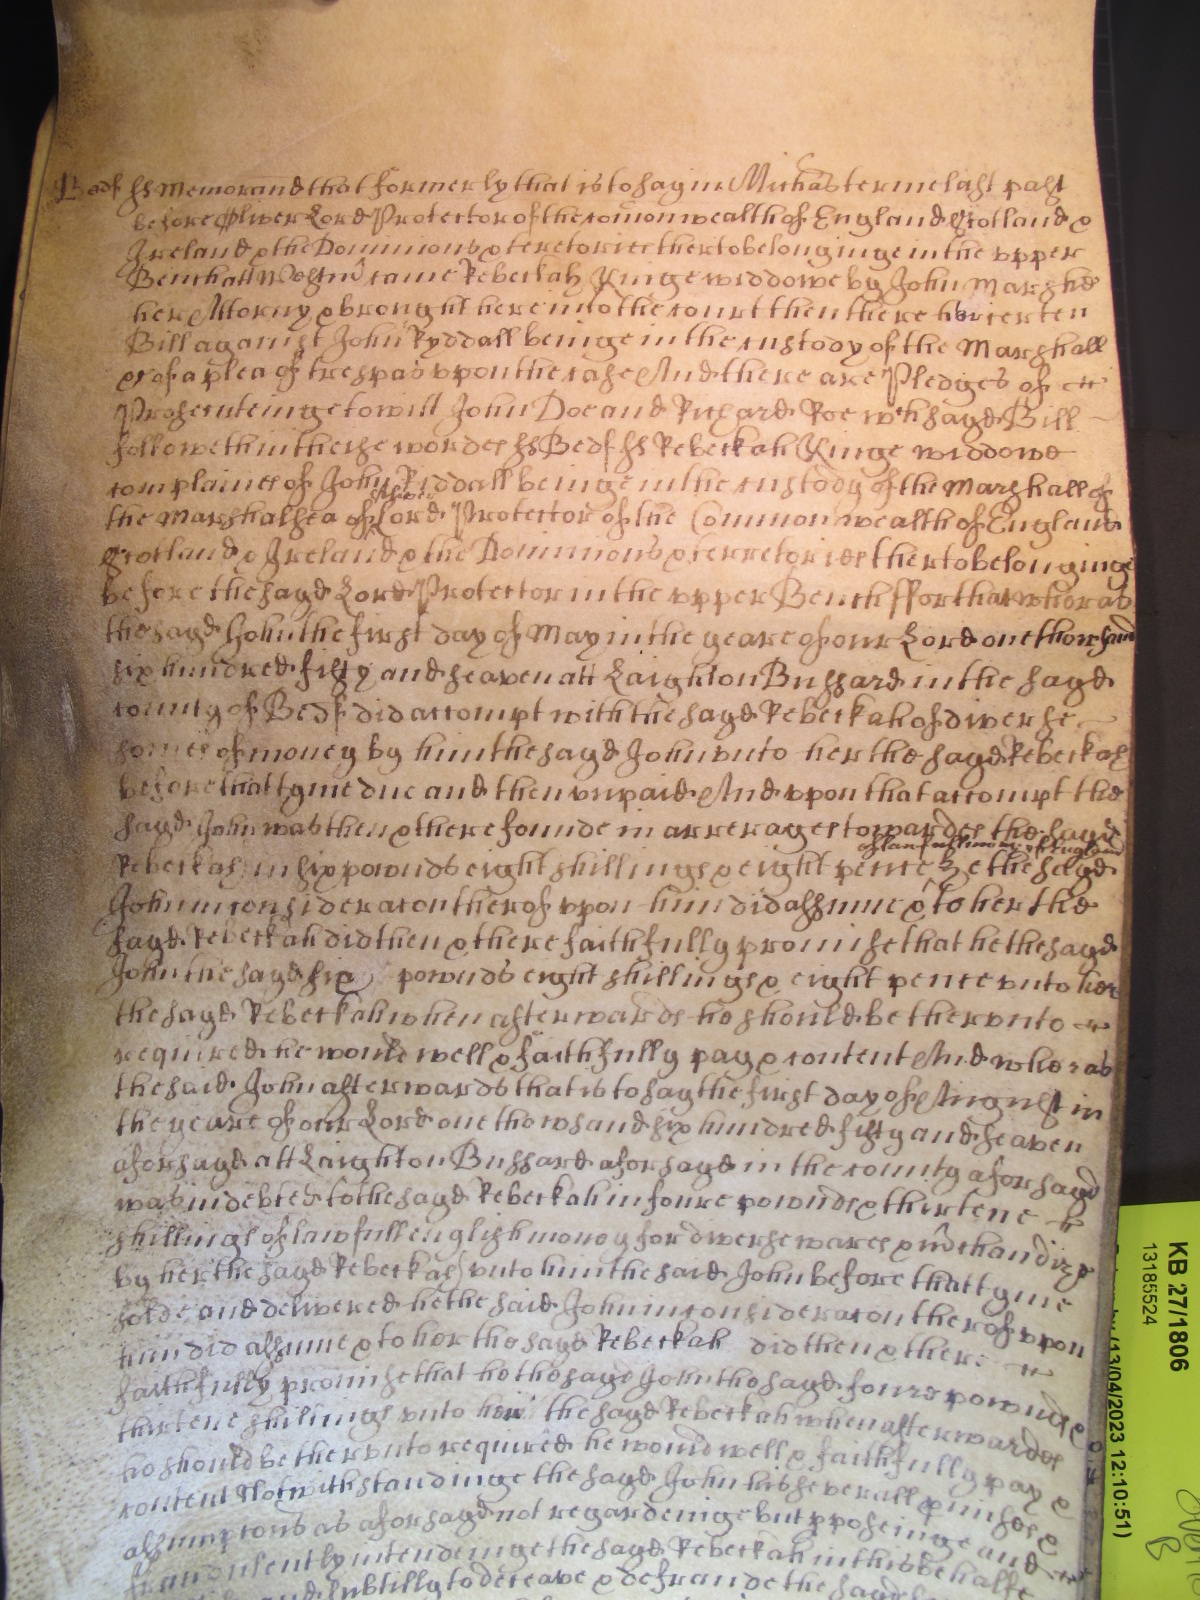 Bedf ss Memorand that formerly that is to say in Michas terme last past
before Oliver Lord Protector of the comonwealth of England Scotland &
Ireland & the Dominions & teretories therto belonginge in the upper
Bench att Westmr came Rebeckah Kinge widdowe by John Marshe
her Attorny & brought here into the court then there her certen
Bill against John Ryddall beinge in the custody of the Marshall
&c of a plea of trespas upon the case And there are Pledges of
Prosecuteinge to witt John Doe and Richard Roe wch sayd Bill
followeth in these wordes ss Bedf ss Rebeckah Kinge widdowe
complaines of John Riddall beinge in the custody of the Marshall of
the Marshalsea of Lord Protector of the Commonwealth of England
Scotland & Ireland & the Dominions & terretories therto belonginge
before the sayd Lord Protector in the upper Bench ffor that wheras
the sayd John the first day of May in the yeare of our Lord one thowsand
six hundred fifty and seaven att Laighton Bussard in the sayd
county of Bedf did accompt with the sayd Rebeckah of diverse
somes of money by him the sayd John unto her the sayd Rebeckah
before that tyme due and then unpaid And upon that accompt the
sayd John was then & there founde in arrerages towardes the sayd
of lawfull money of England
Rebeckah in six pownds eight shillings & eight pence he the sayd
John in consideracon therof upon him did assume & to her the
sayd Rebeckah did then & there faithfully promise that he the sayd
John the sayd six pownds eight shillings & eight pence unto her
the sayd Rebeckah when afterwards he should be therunto
required he would well & faithfully pay & content And wheras
the said John afterwards that is to say the first day of August in
the yeare of our Lord one thowsand six hundred fifty and seaven
aforsayd att Laighton Bussard aforsayd in the county aforsayd
was indebted to the sayd Rebeckah in foure pownds & thirtene
shillings of lawfull english money for diverse wares & mchandize
by her the sayd Rebeckah unto him the said John before that tyme
solde and delivered he the said John in consideracon therof upon
him did assume & to her the sayd Rebeckah did then & there
faithfully promise that he the sayd John the sayd foure pownds &
thirtene shillings unto her the sayd Rebeckah when afterwardes
he should be therunto required he would well & faithfully pay &
content Notwithstandinge the sayd John his severall pmises &
assumptons as aforsayd not regardeinge but pposeinge and
fraudulently intendeinge the sayd Rebeckah in this behalfe
and subtilly to deceave & defraude the sayd
KB 27/1806
13185524
(13/04/2023 12:10:51)